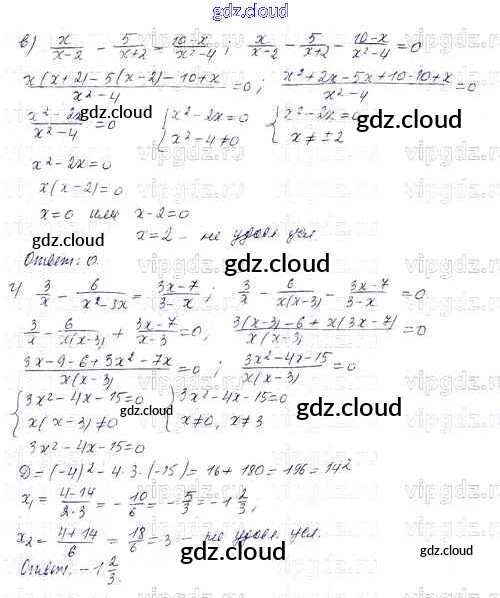 gdz.cloud
в) x/(x-2) - 5/(x+2) = (10-x)/(x²-4) ; x/(x-2) - 5/(x+2) - (10-x)/(x²-4) = 0
(x(x+2) - 5(x-2) - 10 + x)/(x²-4) = 0 ; (x² + 2x - 5x + 10 - 10 + x)/(x²-4) = 0
(x² - 2x)/(x² - 4) = 0 { x² - 2x = 0 { x² - 2x = 0
x² - 4 ≠ 0 x ≠ ±2
gdz.cloud
x² - 2x = 0
x(x-2) = 0
x = 0 или x - 2 = 0
gdz.cloud
x = 2 - не удовл. усл.
gdz.cloud
Ответ: 0.
gdz.cloud
г) 3/x - 6/(x²-3x) = (3x-7)/(3-x) ; 3/x - 6/(x(x-3)) - (3x-7)/(3-x) = 0
3/x - 6/(x(x-3)) + (3x-7)/(x-3) = 0, (3(x-3) - 6 + x(3x-7))/(x(x-3)) = 0
(3x - 9 - 6 + 3x² - 7x)/(x(x-3)) = 0 ; (3x² - 4x - 15)/(x(x-3)) = 0
{ 3x² - 4x - 15 = 0 { 3x² - 4x - 15 = 0
x(x-3) ≠ 0 x ≠ 0, x ≠ 3
gdz.cloud
gdz.cloud
3x² - 4x - 15 = 0
D = (-4)² - 4·3·(-15) = 16 + 180 = 196 = 14²
x₁ = (4-14)/(2·3) = -10/6 = -5/3 = -1 2/3,
x₂ = (4+14)/6 = 18/6 = 3 - не удовл. усл.
gdz.cloud
gdz.cloud
Ответ: -1 2/3.